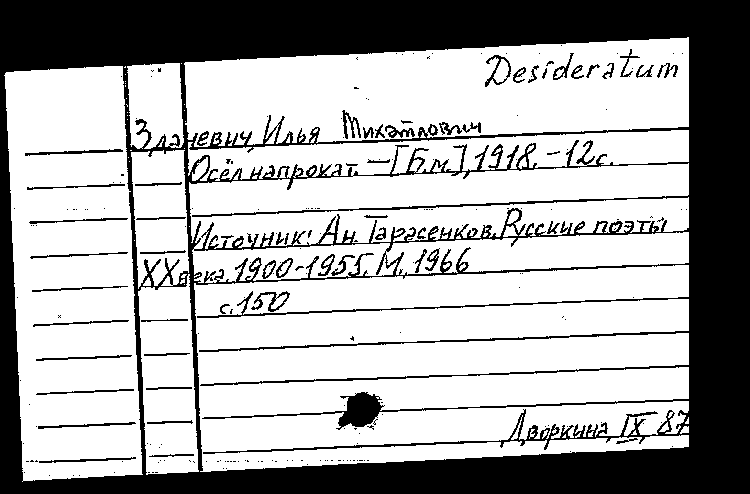 Desideratum
Зданевич, Илья Михайлович
Осёл напрокат. – [Б.м.], 1918. – 12 с.
Источник: Ан. Тарасенков. Русские поэты
XX века. 1900-1955. М., 1966
с. 150
Дворкина, IX, 87